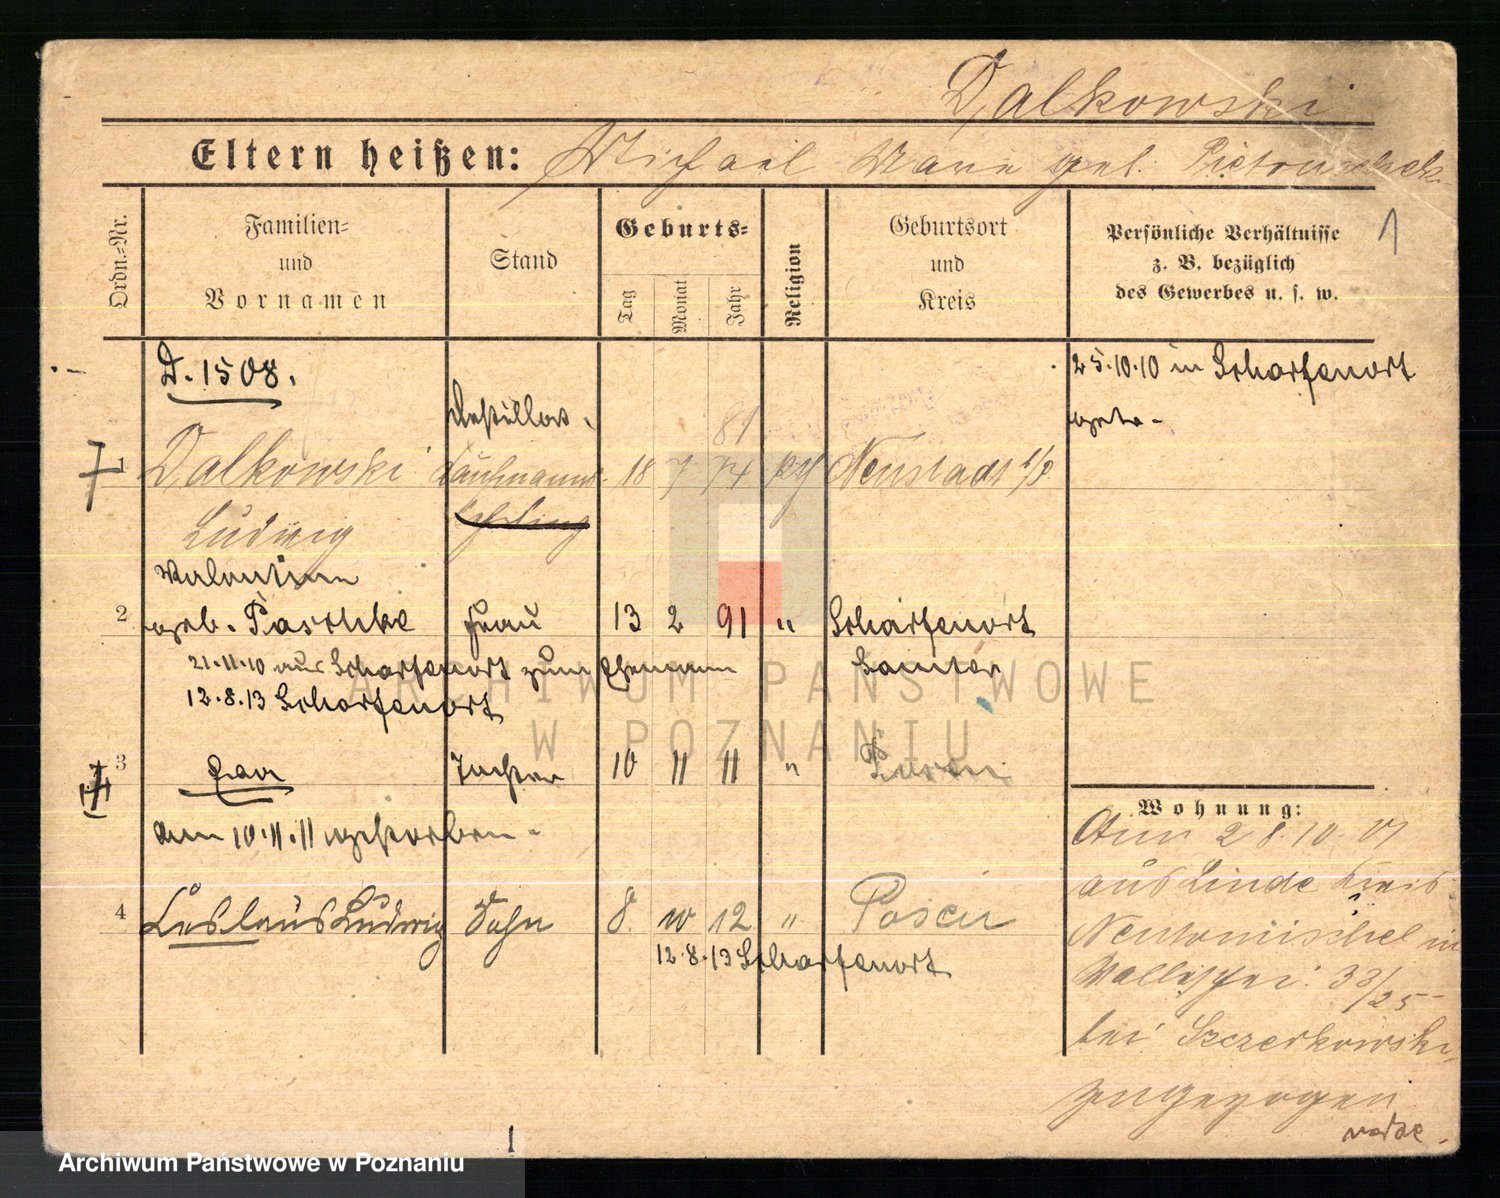 Dalkowski
Eltern heißen: Michael Marie geb.
Ordn.=Nr.
Familien=
und
Vornamen
Stand
Geburts=
Tag
Monat
Jahr
Religion
Geburtsort
und
Kreis
Persönliche Verhältnisse
z. B. bezüglich
des Gewerbes u. s. w.
1
D. 1508.
25.10.10 in Scharfenort
getr.
Destillat.
81
1 Dalkowski Kaufmanns 18 7 74 Neustadt
Ludwig
Valentine
2 geb. Paschke Frau 13 2 91 " Scharfenort
21.11.10 aus Scharfenort zum Ehemann Samter
12.8.13 Scharfenort
3 Tochter 10 11 11 "
am 10.11.11 gestorben.
4 Leslaus Ludwig Sohn 8. 10 12 " Posen
12.8.13 Scharfenort
Wohnung:
Am 28.10.01
aus Linde Kreis
Neutomischel in
Wallischei 33/25
bei Szczerkowski
zugezogen
1
ARCHIWUM PAŃSTWOWE
W POZNANIU
Archiwum Państwowe w Poznaniu